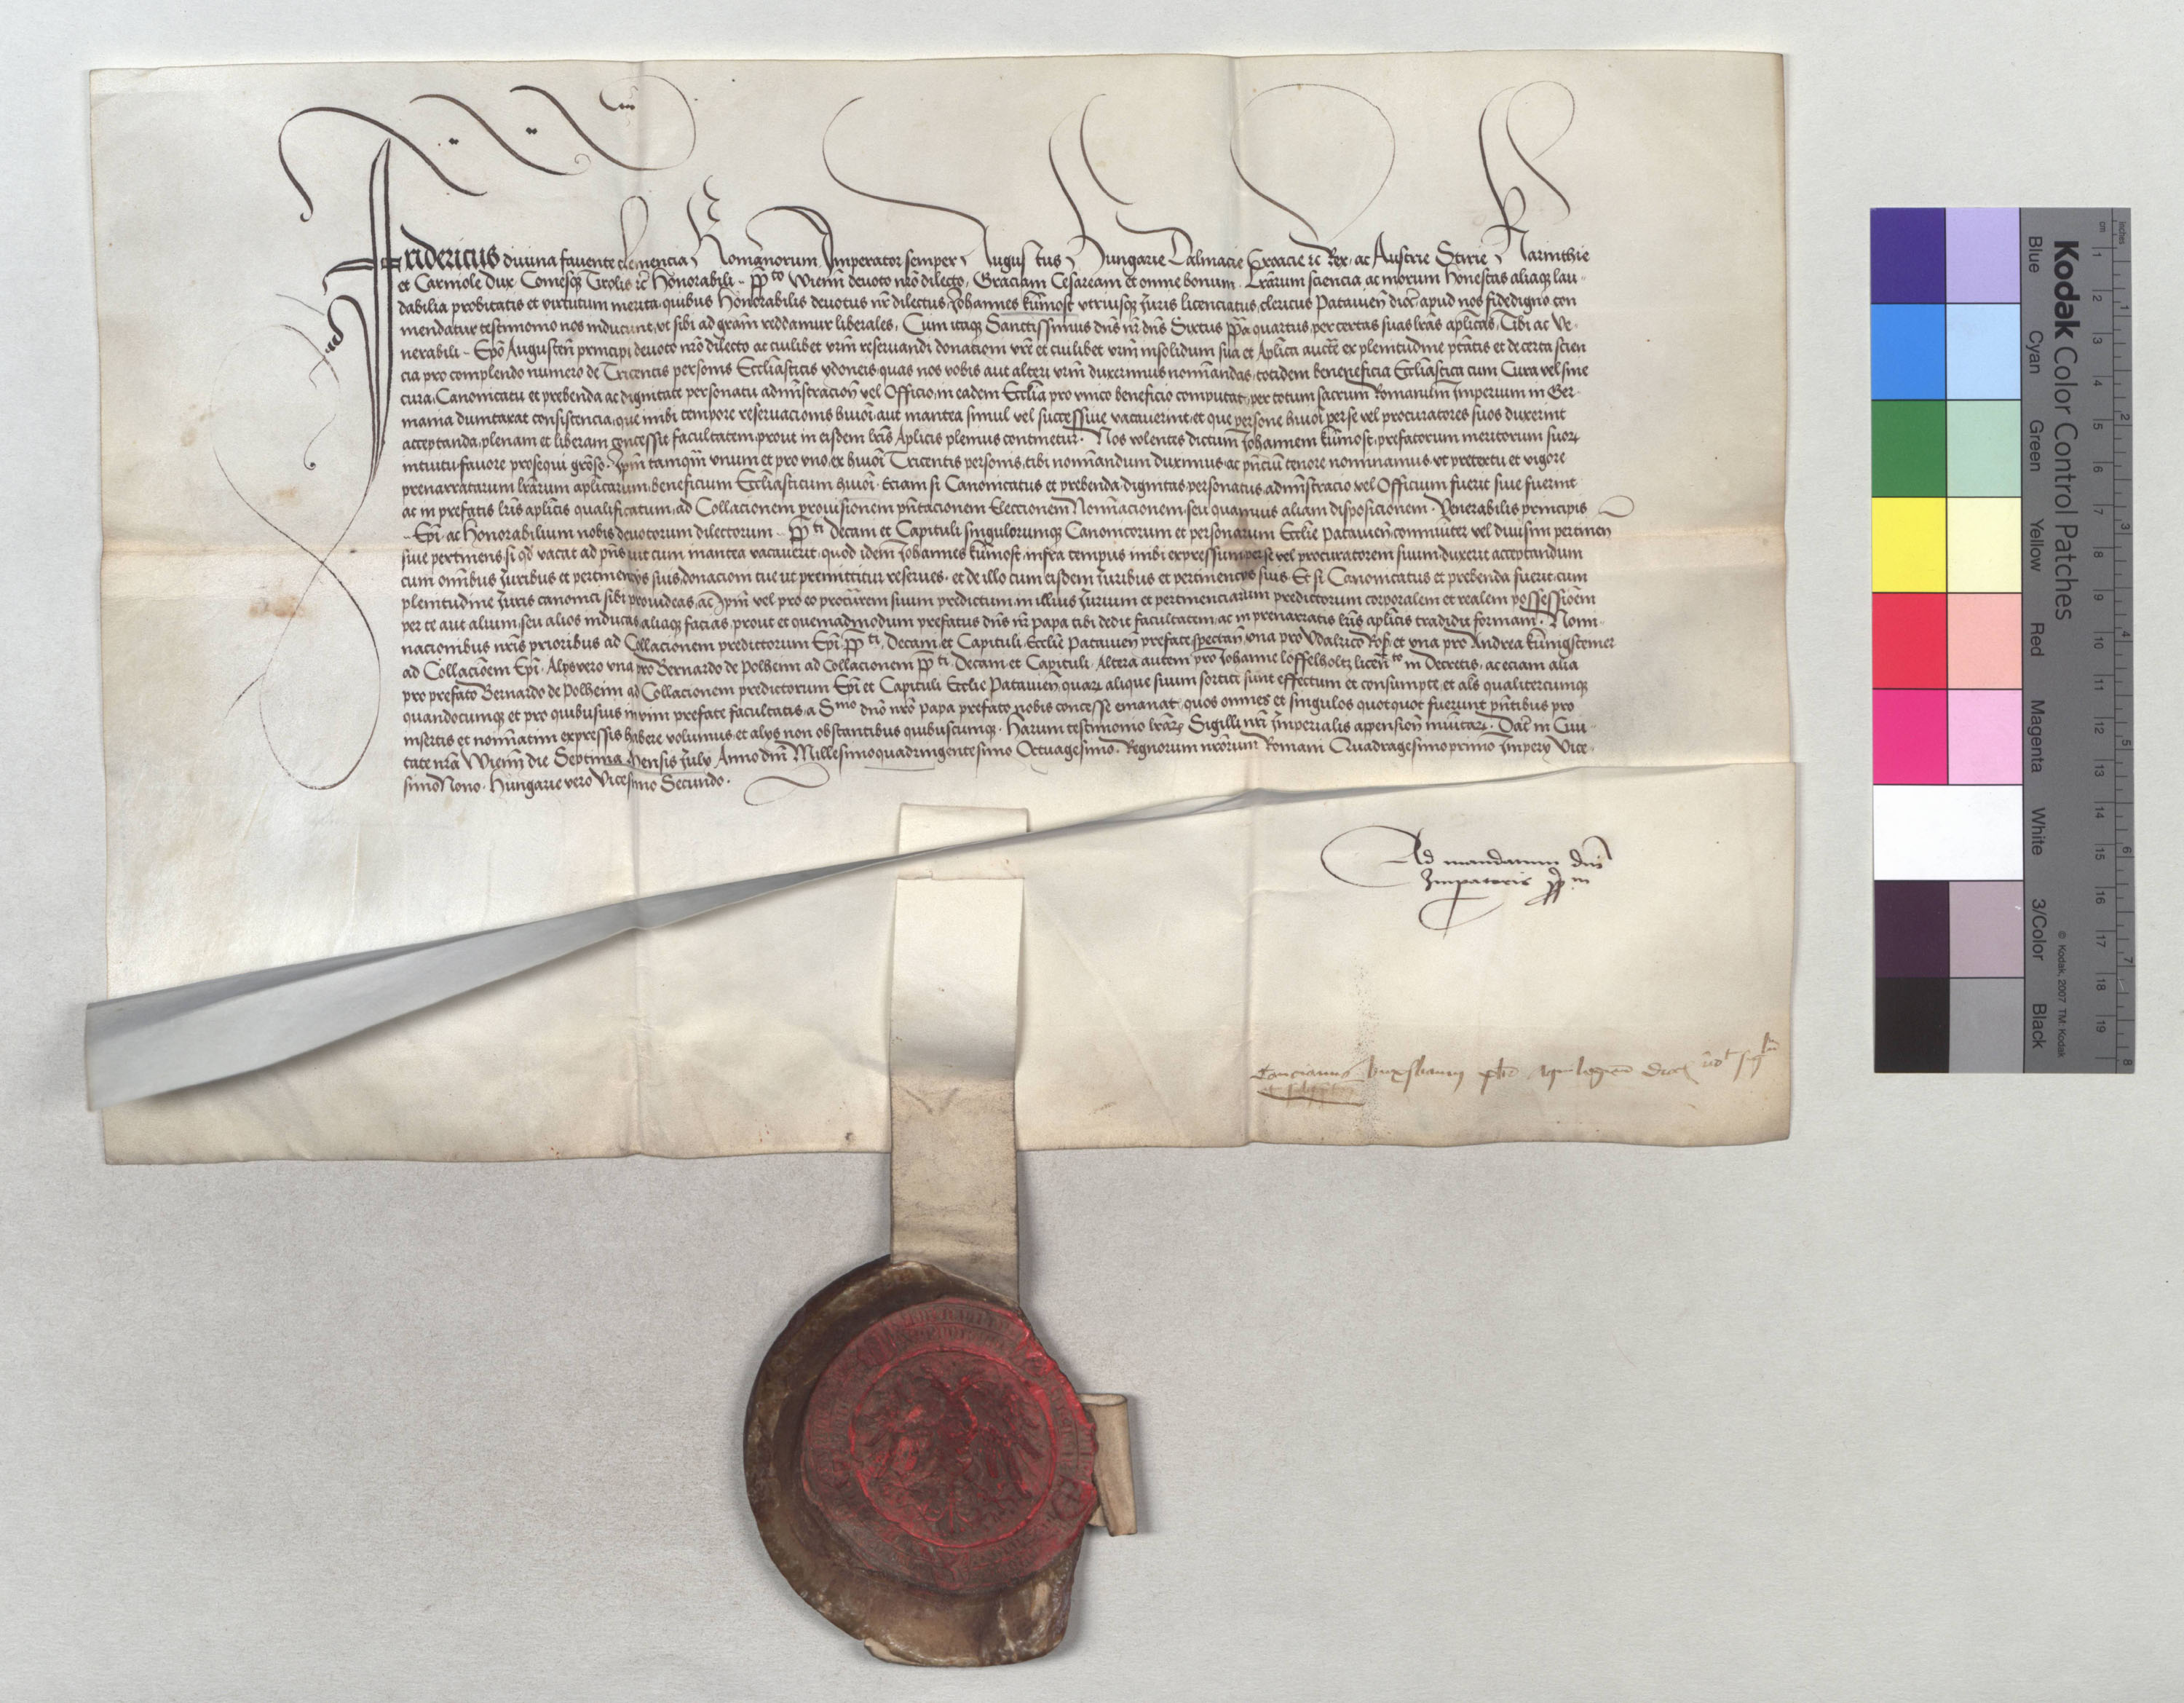 Fridericus diuina fauente clemencia Romanorum Imperator semper Augustus Hungarie Dalmacie Croacie ꝛc̃ Rex. ac Austrie Stirie Karinthie
et Carniole Dux Comesq̃ Tirolis ꝛc̃ Honorabili .. pp̃to Wieñ deuoto nr̃o dilecto, Graciam Cesaream et omne bonum. Lr̃arum sciencia ac morum honestas aliaq̃ lau-
dabilia probitatis et virtutum merita, quibus Honorabilis deuotus nr̃ dilectus Johannes kũmost vtriusq̃ Juris licenciatus, clericus Patauieñ dioc̃ apud nos fidedigno con
mendatur testimonio nos inducunt, vt sibi ad gr̃am reddamur liberales, Cum itaq̃ Sanctissimus dñs nr̃ dñs Sixtus pp̃a quartus, per certas suas lr̃as apl̃icas, Tibi ac Ve-
nerabili .. Ep̃o Augusteñ principi deuoto nr̃o dilecto ac cuilibet vr̃m reseruandi donacioni vr̃e et cuilibet vr̃m insolidum sua et Apl̃ica aucte ex plenitudine ptãtis et de certa scien
cia pro complendo numero de Tricentis personis Ecc̃liasticis ydoneis, quas nos vobis aut alteri vr̃m duxerimus nominandas, totidem beneneficia Ecc̃liastica cum Cura vel sine
cura, Canonicatu et prebenda ac dignitate personatu adm̃istracioñ vel Officio, in eadem Ecc̃lia pro vnico beneficio computat, per totum sacrum Romanum Imperium in Ger-
mania dumtaxat consistencia, que inibi tempore reseruacionis huiõi aut inantea simul vel successiue vacauerint, et que persone huiõi per se vel procuratores suos duxerint
acceptanda, plenam et liberam concessit facultatem, prout in eisdem lr̃is Apl̃icis plenius continetur. Nos volentes dictum Johannem kũmost, prefatorum meritorum suoꝝ
intuitu, fauore prosequi gr̃oso, Ip̃m tamq̃m vnum et pro vno, ex huiõi Tricentis personis, tibi nominandum duximus, ac pñciũ tenore nominamus, vt pretextu et vigore
prenarratarum lr̃arum apl̃icarum, beneficium Ecc̃liasticum huiõi. Eciam si Canonicatus et prebenda, dignitas, personatus, adm̃istracio, vel Officium fuerit siue fuerint
ac in prefatis lr̃is apl̃icis qualificatum, ad Collacionem prouisionem pñtacionem Eleccionem Nominacionem, seu quamuis aliam disposicionem. Venerabilis principis
.. Ep̃i, ac Honorabilium nobis deuotorum dilectorum .. pp̃ti Decani et Capituli, singulorumq̃ Canonicorum et personarum Ecc̃lie Patauieñ, com̃uniter vel diuisim pertineñ
siue pertinens, si qd̃ vacat ad pñs uut cum inantea vacauerit, quod idem Johannes kũmost infra tempus inibi expressum per se vel procuratorem suum duxerit acceptandum
cum om̃ibus Juribus et pertinencijs suis, donacioni tue ut premittitur reserues, et de illo cum eisdem Juribus et pertinencijs suis. Et si Canonicatus et prebenda fuerit, cum
plenitudine Juris canonici sibi prouideas, ac Ip̃m vel pro eo procur̃em suum predictum, in illius Jurium et pertinenciarum predictorum corporalem et realem possessioem
per te aut alium, seu alios inducas, aliaq̃ facias, prout et quemadmodum prefatus dñs nr̃ papa tibi dedit facultatem, ac in prenarratis lr̃is apl̃icis tradidit formam. Nomi-
nacionibus nr̃is prioribus ad Collacionem predictorum Ep̃i, pp̃ti, Decani, et Capituli, Ecc̃lie Patauieñ prefate spectañ, vna pro Vdalrico Ross, et vna pro Andrea kũnigsteiner
ad Collacioem Ep̃i. Alijs vero vna pro Bernardo de Polheim ad Collacionem pp̃ti, Decani et Capituli, Altera autem pro Johanne loffelholtz licen̄to in Decretis, ac eciam alia
pro prefato Bernardo de Polheim ad Collacionem predictorum Ep̃i et Capituli Ecc̃lie Patauieñ, quaꝝ alique suum sortite sunt effectum et consumpte, et al̃s qualitercumq̃
quandocumq̃ et pro quibusuis in vim prefate facultatis, a S.mo dño nr̃o papa prefato nobis concesse emanat, quos omnes et singulos quotquot fuerunt pñtibus pro
insertis et nominatim expressis habere volumus, et alijs non obstantibus quibuscumq̃. Harum testimonio lr̃aꝝ Sigilli nr̃i Imperialis appensioñ munitaꝝ. Dat̃ in Ciui-
tate nr̃a Wieñ die Septima Mensis Julij Anno dñi Millesimoquadringentesimo Octuagesimo. Regnorum nr̃orum Romani Quadragesimoprimo Imperij Vice-
simoNono. Hungarie vero Vicesimo Secundo.
Ad mandatum dñi
Imperatoris pp̃m
Kodak Color Control Patches
© Kodak, 2007 TM: Kodak
Blue Cyan Green Yellow Red Magenta White 3/Color Black
inches 1 2 3 4 5 6 7 8
cm 1 2 3 4 5 6 7 8 9 10 11 12 13 14 15 16 17 18 19